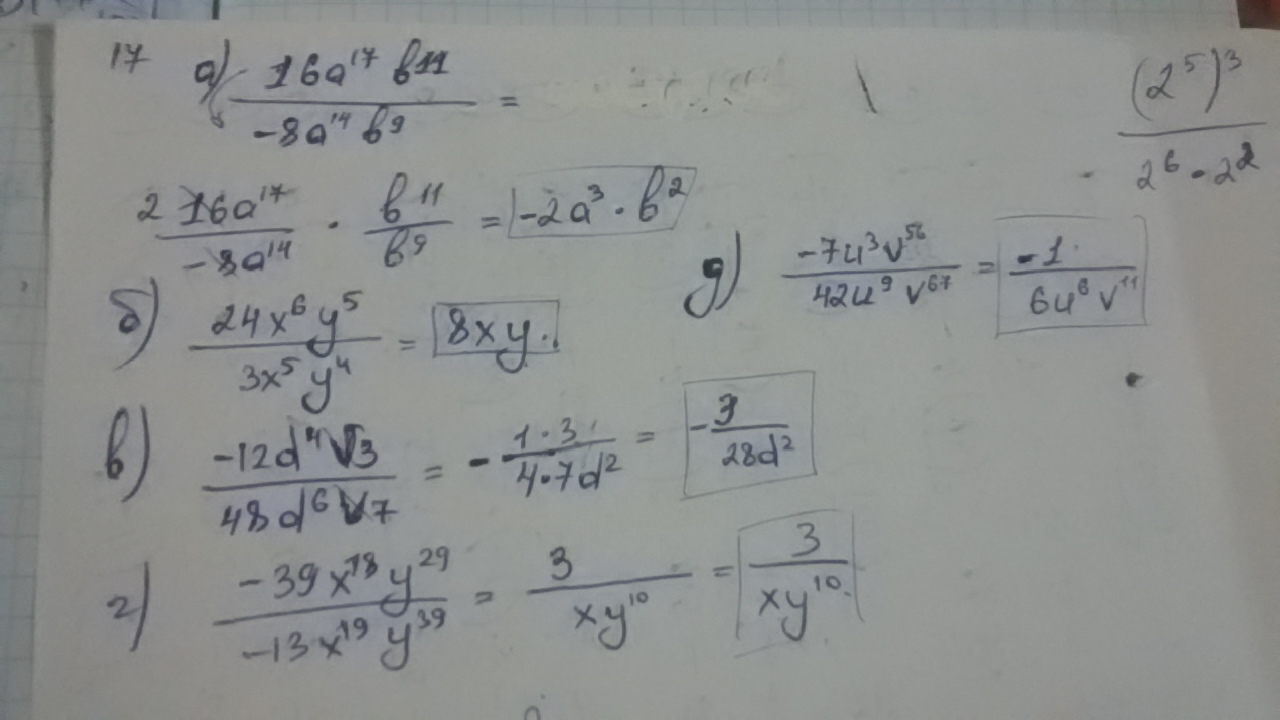 17 а) 16a¹⁷ b¹¹ / -8a¹⁴ b⁹ =
2 16a¹⁷ / -8a¹⁴ · b¹¹ / b⁹ = -2a³ · b²
б) 24x⁶ y⁵ / 3x⁵ y⁴ = 8xy.
в) -12d⁴ V3 / 48d⁶ V7 = - 1·3 / 4·7d² = - 3 / 28d²
г) -39x¹⁸ y²⁹ / -13x¹⁹ y³⁹ = 3 / xy¹⁰ = 3 / xy¹⁰.
(2⁵)³ / 2⁶ · 2²
д) -7u³ v⁵⁶ / 42u⁹ v⁶⁷ = -1 / 6u⁶ v¹¹